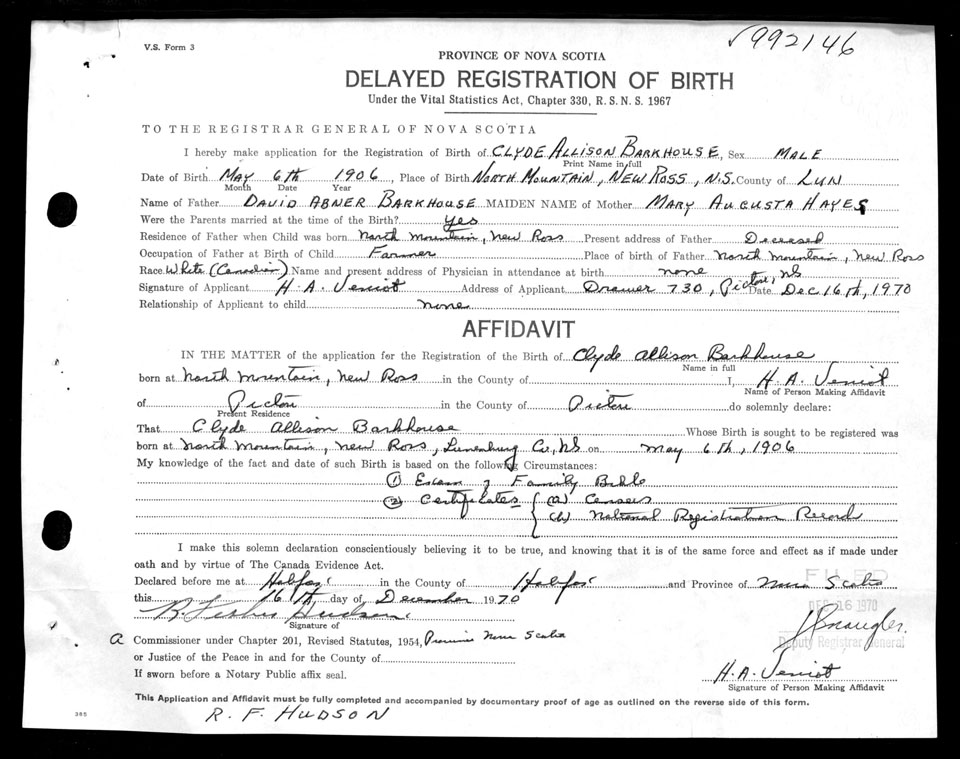 √992146
V.S. Form 3
PROVINCE OF NOVA SCOTIA
DELAYED REGISTRATION OF BIRTH
Under the Vital Statistics Act, Chapter 330, R.S.N.S. 1967
TO THE REGISTRAR GENERAL OF NOVA SCOTIA
I hereby make application for the Registration of Birth of CLYDE ALLISON BARKHOUSE, Sex MALE
Print Name in full
Date of Birth MAY 6th 1906, Place of Birth NORTH MOUNTAIN, NEW ROSS, N.S. County of LUN
Month Date Year
Name of Father DAVID ABNER BARKHOUSE MAIDEN NAME of Mother MARY AUGUSTA HAYES
Were the Parents married at the time of the Birth? Yes
Residence of Father when Child was born North Mountain, New Ross Present address of Father Deceased
Occupation of Father at Birth of Child Farmer Place of birth of Father North Mountain, New Ross
Race White (Canadian) Name and present address of Physician in attendance at birth none
Signature of Applicant H. A. Veniot Address of Applicant Drawer 730, Pictou, NS Date Dec 16th, 1970
Relationship of Applicant to child none
AFFIDAVIT
IN THE MATTER of the application for the Registration of the Birth of Clyde Allison Barkhouse
Name in full
born at North Mountain, New Ross in the County of I, H. A. Veniot
Name of Person Making Affidavit
of Pictou in the County of Pictou do solemnly declare:
Present Residence
That Clyde Allison Barkhouse Whose Birth is sought to be registered was
born at North Mountain, New Ross, Lunenburg Co, NS on May 6th, 1906
My knowledge of the fact and date of such Birth is based on the following Circumstances:
(1) Exam of Family Bible
(2) Certificates (a) Census
(b) National Registration Record
I make this solemn declaration conscientiously believing it to be true, and knowing that it is of the same force and effect as if made under
oath and by virtue of The Canada Evidence Act.
Declared before me at Halifax in the County of Halifax and Province of Nova Scotia
this 16th day of December 1970
FILED
DEC 16 1970
Deputy Registrar General
Signature of
a Commissioner under Chapter 201, Revised Statutes, 1954, Province Nova Scotia
or Justice of the Peace in and for the County of
If sworn before a Notary Public affix seal.
H. A. Veniot
Signature of Person Making Affidavit
This Application and Affidavit must be fully completed and accompanied by documentary proof of age as outlined on the reverse side of this form.
385
R. F. HUDSON